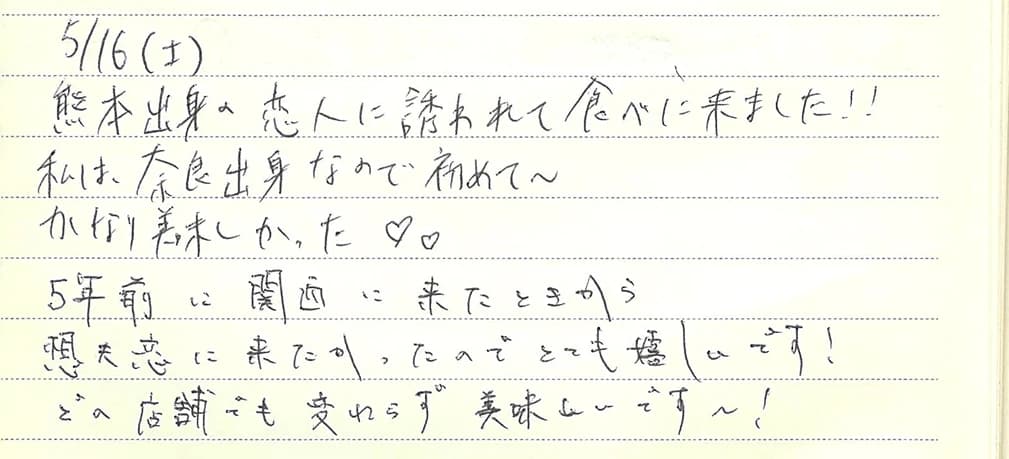 5/16(土)
熊本出身の恋人に誘われて食べに来ました!!
私は、奈良出身なので初めて〜
かなり美味しかった♡♡
5年前に関西に来たときから
想夫恋に来たかったのでとても嬉しいです!
どの店舗でも変わらず美味しいです〜!